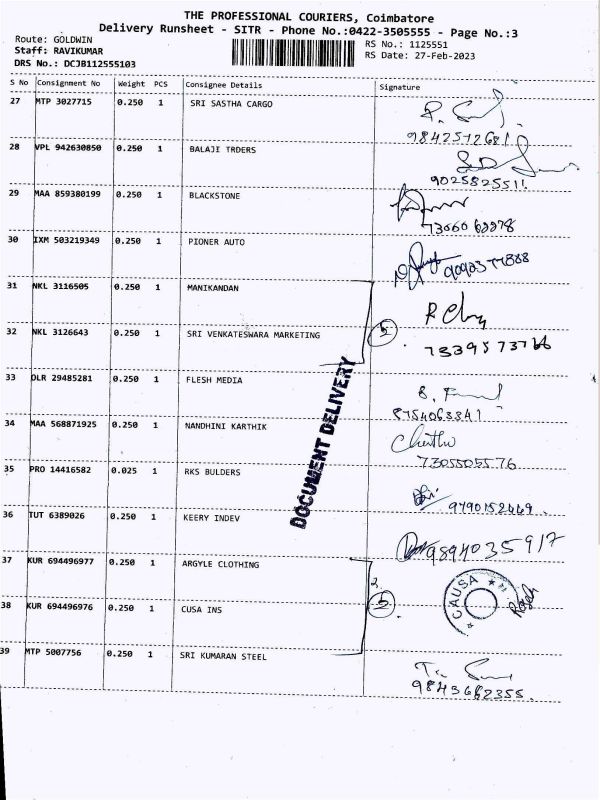 THE PROFESSIONAL COURIERS, Coimbatore
Delivery Runsheet - SITR - Phone No.:0422-3505555 - Page No.:3
Route: GOLDWIN
Staff: RAVIKUMAR
DRS No.: DCJB112555103
RS No.: 1125551
RS Date: 27-Feb-2023
S No Consignment No Weight PCS Consignee Details Signature
27 MTP 3027715 0.250 1 SRI SASTHA CARGO
28 VPL 942630850 0.250 1 BALAJI TRDERS
9025825511.
29 MAA 859380199 0.250 1 BLACKSTONE
30 IXM 503219349 0.250 1 PIONER AUTO
31 NKL 3116505 0.250 1 MANIKANDAN
32 NKL 3126643 0.250 1 SRI VENKATESWARA MARKETING
5
33 DLR 29485281 0.250 1 FLESH MEDIA
8754063341
34 MAA 568871925 0.250 1 NANDHINI KARTHIK
7305505576
35 PRO 14416582 0.025 1 RKS BULDERS
9790152469.
36 TUT 6389026 0.250 1 KEERY INDEV
9894035917
37 KUR 694496977 0.250 1 ARGYLE CLOTHING
38 KUR 694496976 0.250 1 CUSA INS
CAUSA
39 MTP 5007756 0.250 1 SRI KUMARAN STEEL
9843662355.
DOCUMENT DELIVERY